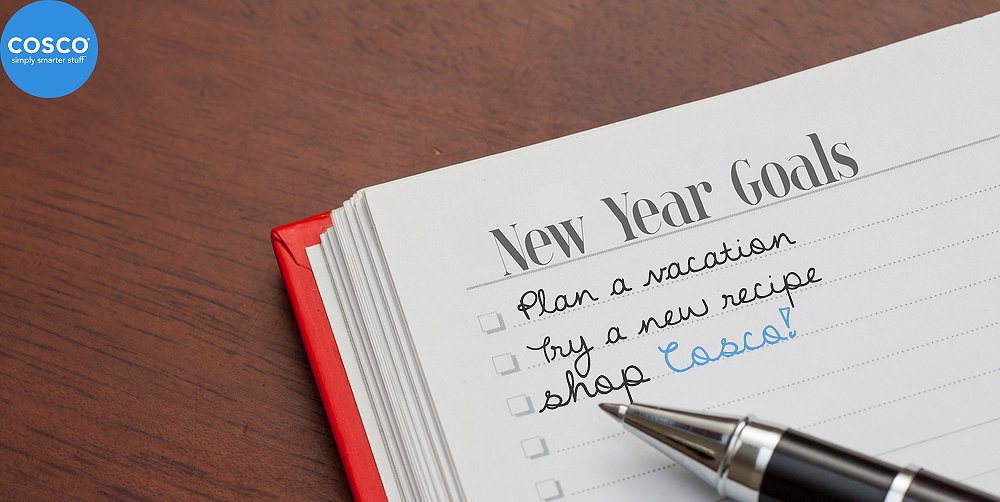 COSCO®
simply smarter stuff™
New Year Goals
Plan a vacation
Try a new recipe
shop Cosco!